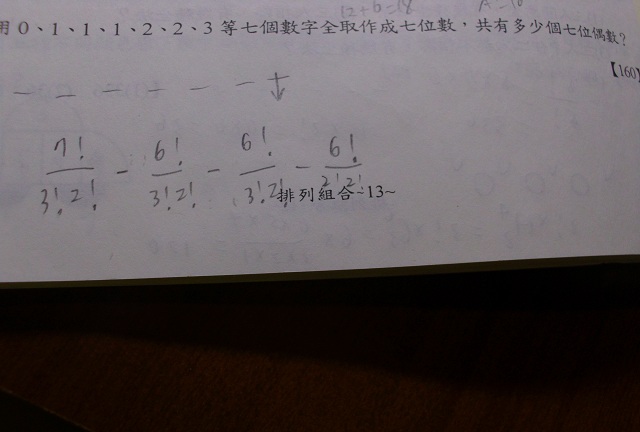 12+6=18
用 0、1、1、1、2、2、3 等七個數字全取作成七位數，共有多少個七位偶數？
【160】
7!/3!2! - 6!/3!2! - 6!/3!2! - 6!/2!2!
排列組合~13~